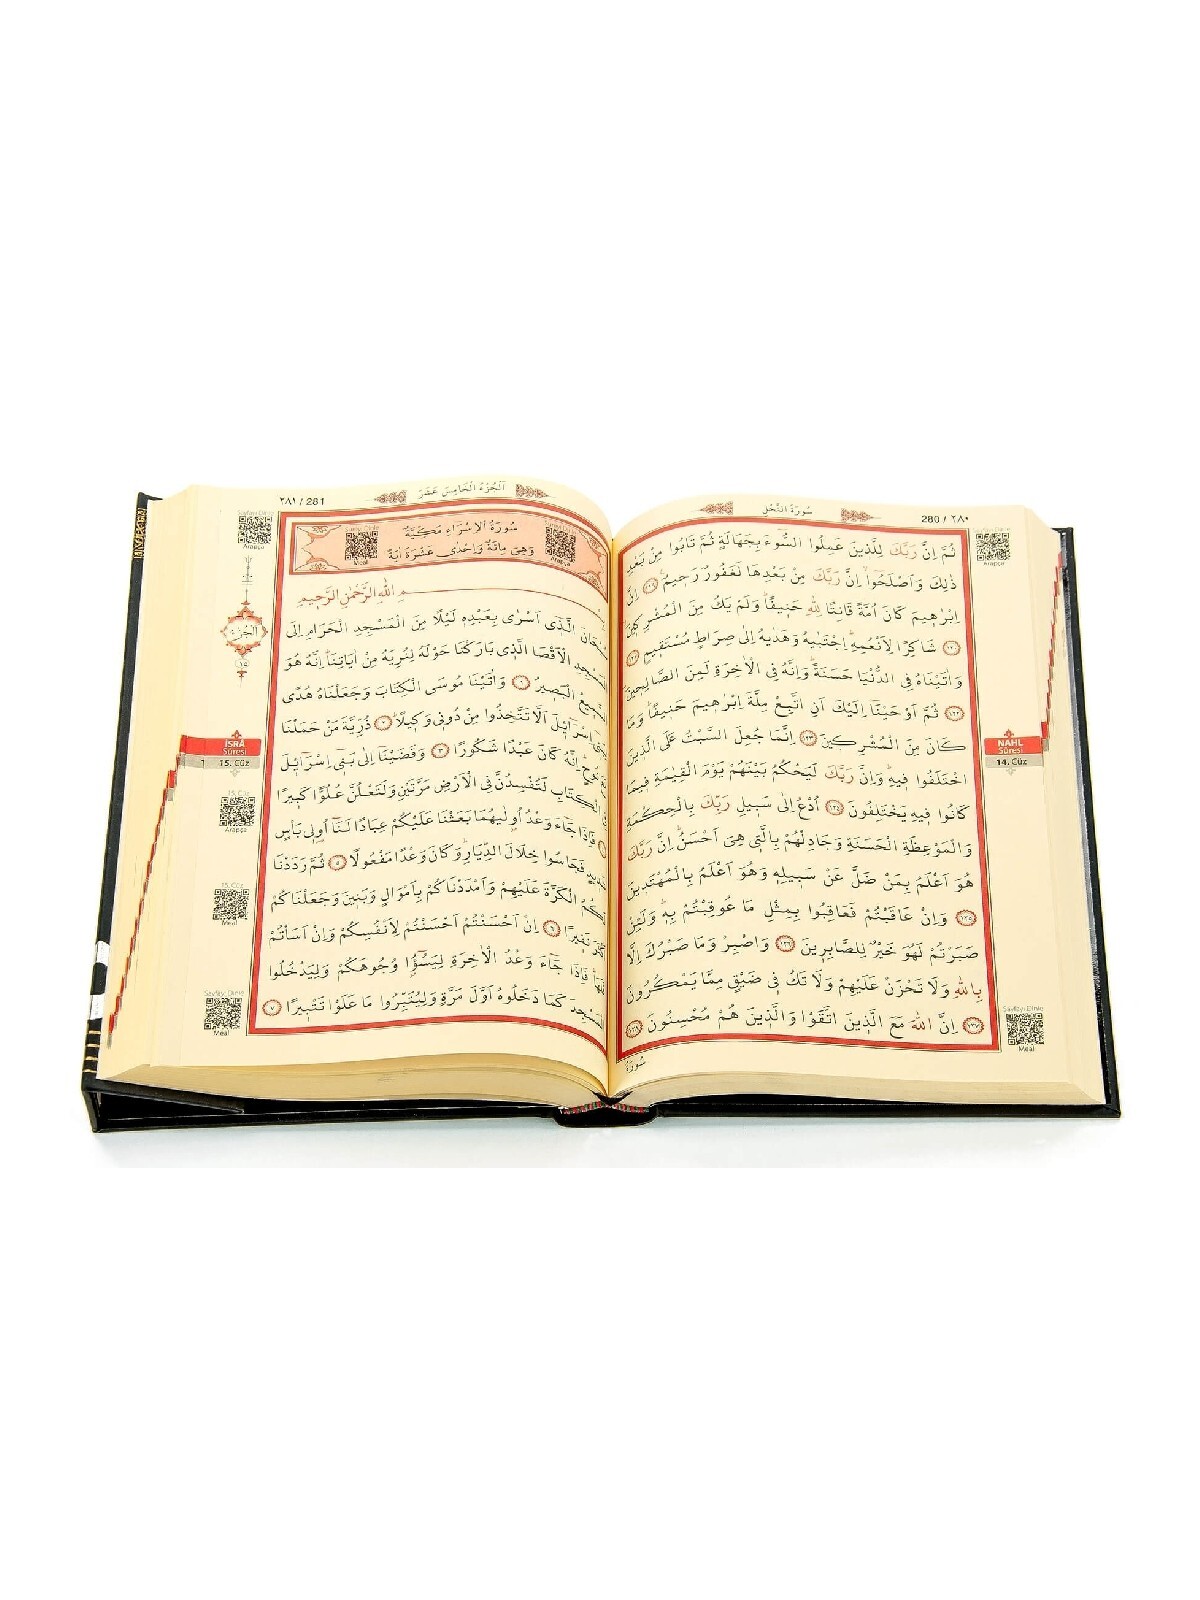 سُورَةُ النَّحْلِ
280 / ٢٨٠
ثُمَّ اِنَّ رَبَّكَ لِلَّذ۪ينَ عَمِلُوا السُّٓوءَ بِجَهَالَةٍ ثُمَّ تَابُوا مِنْ بَعْدِ
ذٰلِكَ وَاَصْلَحُٓوا اِنَّ رَبَّكَ مِنْ بَعْدِهَا لَغَفُورٌ رَح۪يمٌ ﴿١١٩﴾ اِنَّ
اِبْرٰه۪يمَ كَانَ اُمَّةً قَانِتًا لِلّٰهِ حَن۪يفًا وَلَمْ يَكُ مِنَ الْمُشْرِك۪ينَ
﴿١٢٠﴾ شَاكِرًا لِاَنْعُمِهِ اجْتَبٰيهُ وَهَدٰيهُ اِلٰى صِرَاطٍ مُسْتَق۪يمٍ ﴿١٢١﴾
وَاٰتَيْنَاهُ فِي الدُّنْيَا حَسَنَةً وَاِنَّهُ فِي الْاٰخِرَةِ لَمِنَ الصَّالِح۪ينَ
﴿١٢٢﴾ ثُمَّ اَوْحَيْنَٓا اِلَيْكَ اَنِ اتَّبِعْ مِلَّةَ اِبْرٰه۪يمَ حَن۪يفًا وَمَا
كَانَ مِنَ الْمُشْرِك۪ينَ ﴿١٢٣﴾ اِنَّمَا جُعِلَ السَّبْتُ عَلَى الَّذ۪ينَ
اخْتَلَفُوا ف۪يهِ وَاِنَّ رَبَّكَ لَيَحْكُمُ بَيْنَهُمْ يَوْمَ الْقِيٰمَةِ ف۪يمَا
كَانُوا ف۪يهِ يَخْتَلِفُونَ ﴿١٢٤﴾ اُدْعُ اِلٰى سَب۪يلِ رَبِّكَ بِالْحِكْمَةِ
وَالْمَوْعِظَةِ الْحَسَنَةِ وَجَادِلْهُمْ بِالَّت۪ي هِيَ اَحْسَنُ اِنَّ رَبَّكَ
هُوَ اَعْلَمُ بِمَنْ ضَلَّ عَنْ سَب۪يلِه۪ وَهُوَ اَعْلَمُ بِالْمُهْتَد۪ينَ
﴿١٢٥﴾ وَاِنْ عَاقَبْتُمْ فَعَاقِبُوا بِمِثْلِ مَا عُوقِبْتُمْ بِه۪ وَلَئِنْ
صَبَرْتُمْ لَهُوَ خَيْرٌ لِلصَّابِر۪ينَ ﴿١٢٦﴾ وَاصْبِرْ وَمَا صَبْرُكَ اِلَّا
بِاللّٰهِ وَلَا تَحْزَنْ عَلَيْهِمْ وَلَا تَكُ ف۪ي ضَيْقٍ مِمَّا يَمْكُرُونَ
﴿١٢٧﴾ اِنَّ اللّٰهَ مَعَ الَّذ۪ينَ اتَّقَوْا وَالَّذ۪ينَ هُمْ مُحْسِنُونَ ﴿١٢٨﴾
سُورَةُ
Sayfayı Dinle
Arapça
NAHL
Sûresi
14. Cüz
Sayfayı Dinle
Meal
اَلْجُزْءُ الْخَامِسَ عَشَرَ
٢٨١ / 281
سُورَةُ الْاِسْرَاءِ مَكِّيَّةٌ
وَهِيَ مِائَةٌ وَاِحْدٰى عَشَرَةَ اٰيَةً
Meal
Arapça
بِسْمِ اللّٰهِ الرَّحْمٰنِ الرَّح۪يمِ
سُبْحَانَ الَّذ۪ٓي اَسْرٰى بِعَبْدِه۪ لَيْلًا مِنَ الْمَسْجِدِ الْحَرَامِ اِلَى
الْمَسْجِدِ الْاَقْصَا الَّذ۪ي بَارَكْنَا حَوْلَهُ لِنُرِيَهُ مِنْ اٰيَاتِنَا اِنَّهُ هُوَ
السَّم۪يعُ الْبَص۪يرُ ﴿١﴾ وَاٰتَيْنَا مُوسَى الْكِتَابَ وَجَعَلْنَاهُ هُدًى
لِبَن۪ٓي اِسْرَٓائ۪لَ اَلَّا تَتَّخِذُوا مِنْ دُون۪ي وَك۪يلًا ﴿٢﴾ ذُرِّيَّةَ مَنْ حَمَلْنَا
مَعَ نُوحٍ اِنَّهُ كَانَ عَبْدًا شَكُورًا ﴿٣﴾ وَقَضَيْنَٓا اِلٰى بَن۪ٓي اِسْرَٓائ۪لَ
فِي الْكِتَابِ لَتُفْسِدُنَّ فِي الْاَرْضِ مَرَّتَيْنِ وَلَتَعْلُنَّ عُلُوًّا كَب۪يرًا
﴿٤﴾ فَاِذَا جَٓاءَ وَعْدُ اُو۫لٰيهُمَا بَعَثْنَا عَلَيْكُمْ عِبَادًا لَنَٓا اُو۬ل۪ي بَأْسٍ
شَد۪يدٍ فَجَاسُوا خِلَالَ الدِّيَارِ وَكَانَ وَعْدًا مَفْعُولًا ﴿٥﴾ ثُمَّ رَدَدْنَا
لَكُمُ الْكَرَّةَ عَلَيْهِمْ وَاَمْدَدْنَاكُمْ بِاَمْوَالٍ وَبَن۪ينَ وَجَعَلْنَاكُمْ
اَكْثَرَ نَف۪يرًا ﴿٦﴾ اِنْ اَحْسَنْتُمْ اَحْسَنْتُمْ لِاَنْفُسِكُمْ وَاِنْ اَسَأْتُمْ
فَلَهَا فَاِذَا جَٓاءَ وَعْدُ الْاٰخِرَةِ لِيَسُٓوؤُ۫ا وُجُوهَكُمْ وَلِيَدْخُلُوا
الْمَسْجِدَ كَمَا دَخَلُوهُ اَوَّلَ مَرَّةٍ وَلِيُتَبِّرُوا مَا عَلَوْا تَتْب۪يرًا ﴿٧﴾
Sayfayı Dinle
Arapça
اَلْجُزْءُ
١٥
İSRÂ
Sûresi
15. Cüz
15. Cüz
Arapça
15. Cüz
Meal
Sayfayı Dinle
Meal